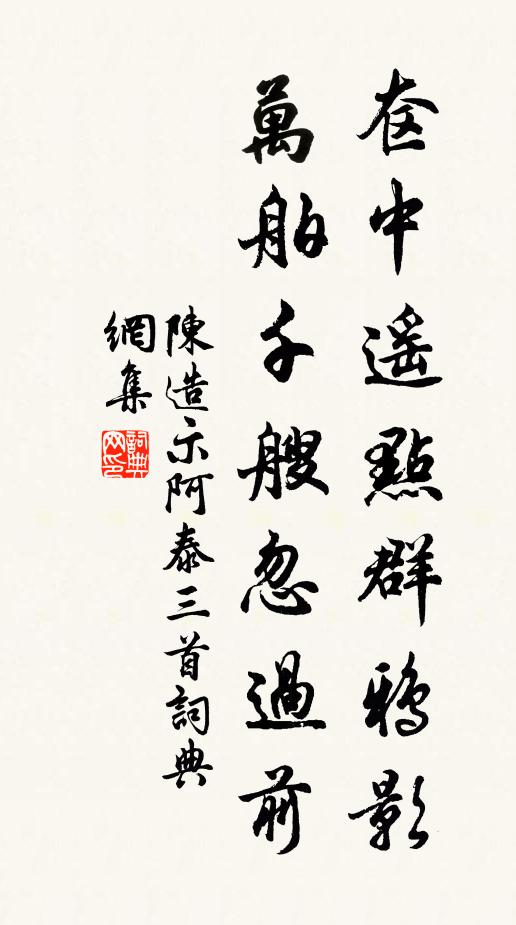 奁中遥點群鴉影
萬舶千艘忽過前
陳造示阿泰三首詞典
網集
詞典
网印